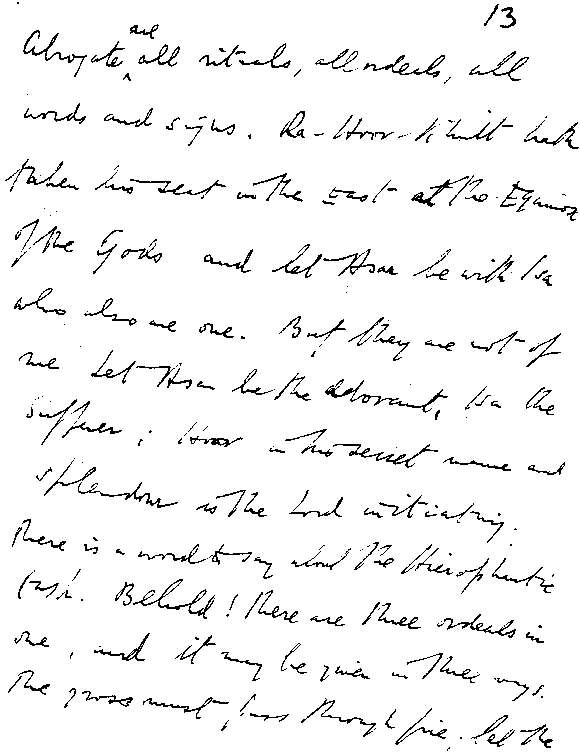 13
are
Abrogate all rituals, all ordeals, all
words and signs. Ra-Hoor-Khuit hath
taken his seat in the East at the Equinox
of the Gods and let Asar be with Isa
who also are one. But they are not of
me Let Asar be the adorant, Isa the
sufferer; Hoor in his secret name and
splendour is the Lord initiating.
There is a word to say about the Hierophantic
task. Behold! there are three ordeals in
one, and it may be given in three ways.
The gross must pass through fire; let the